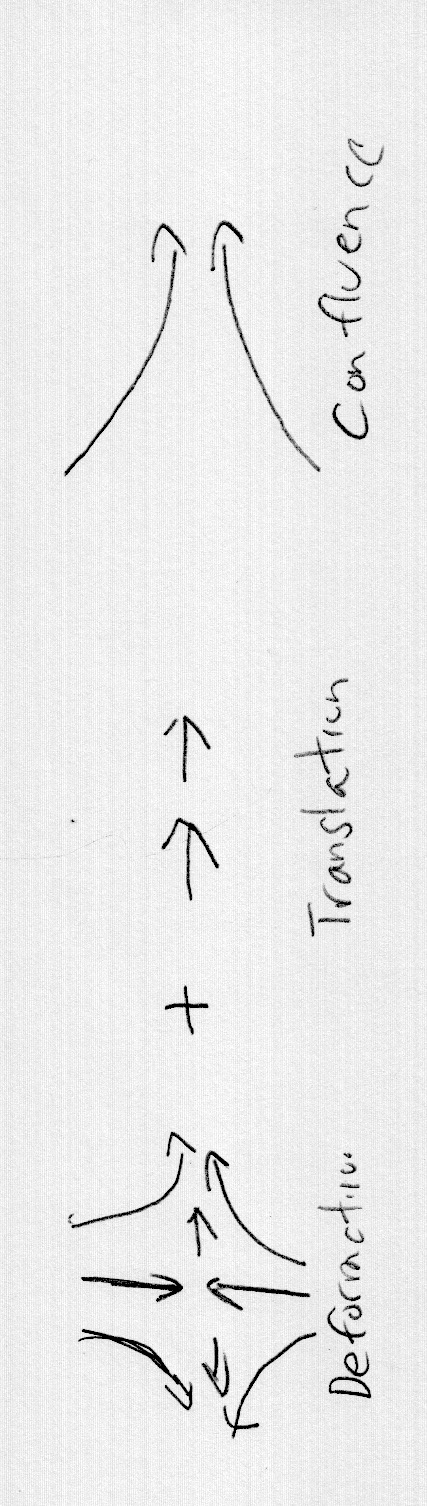 Deformation
+
Translation
Confluence